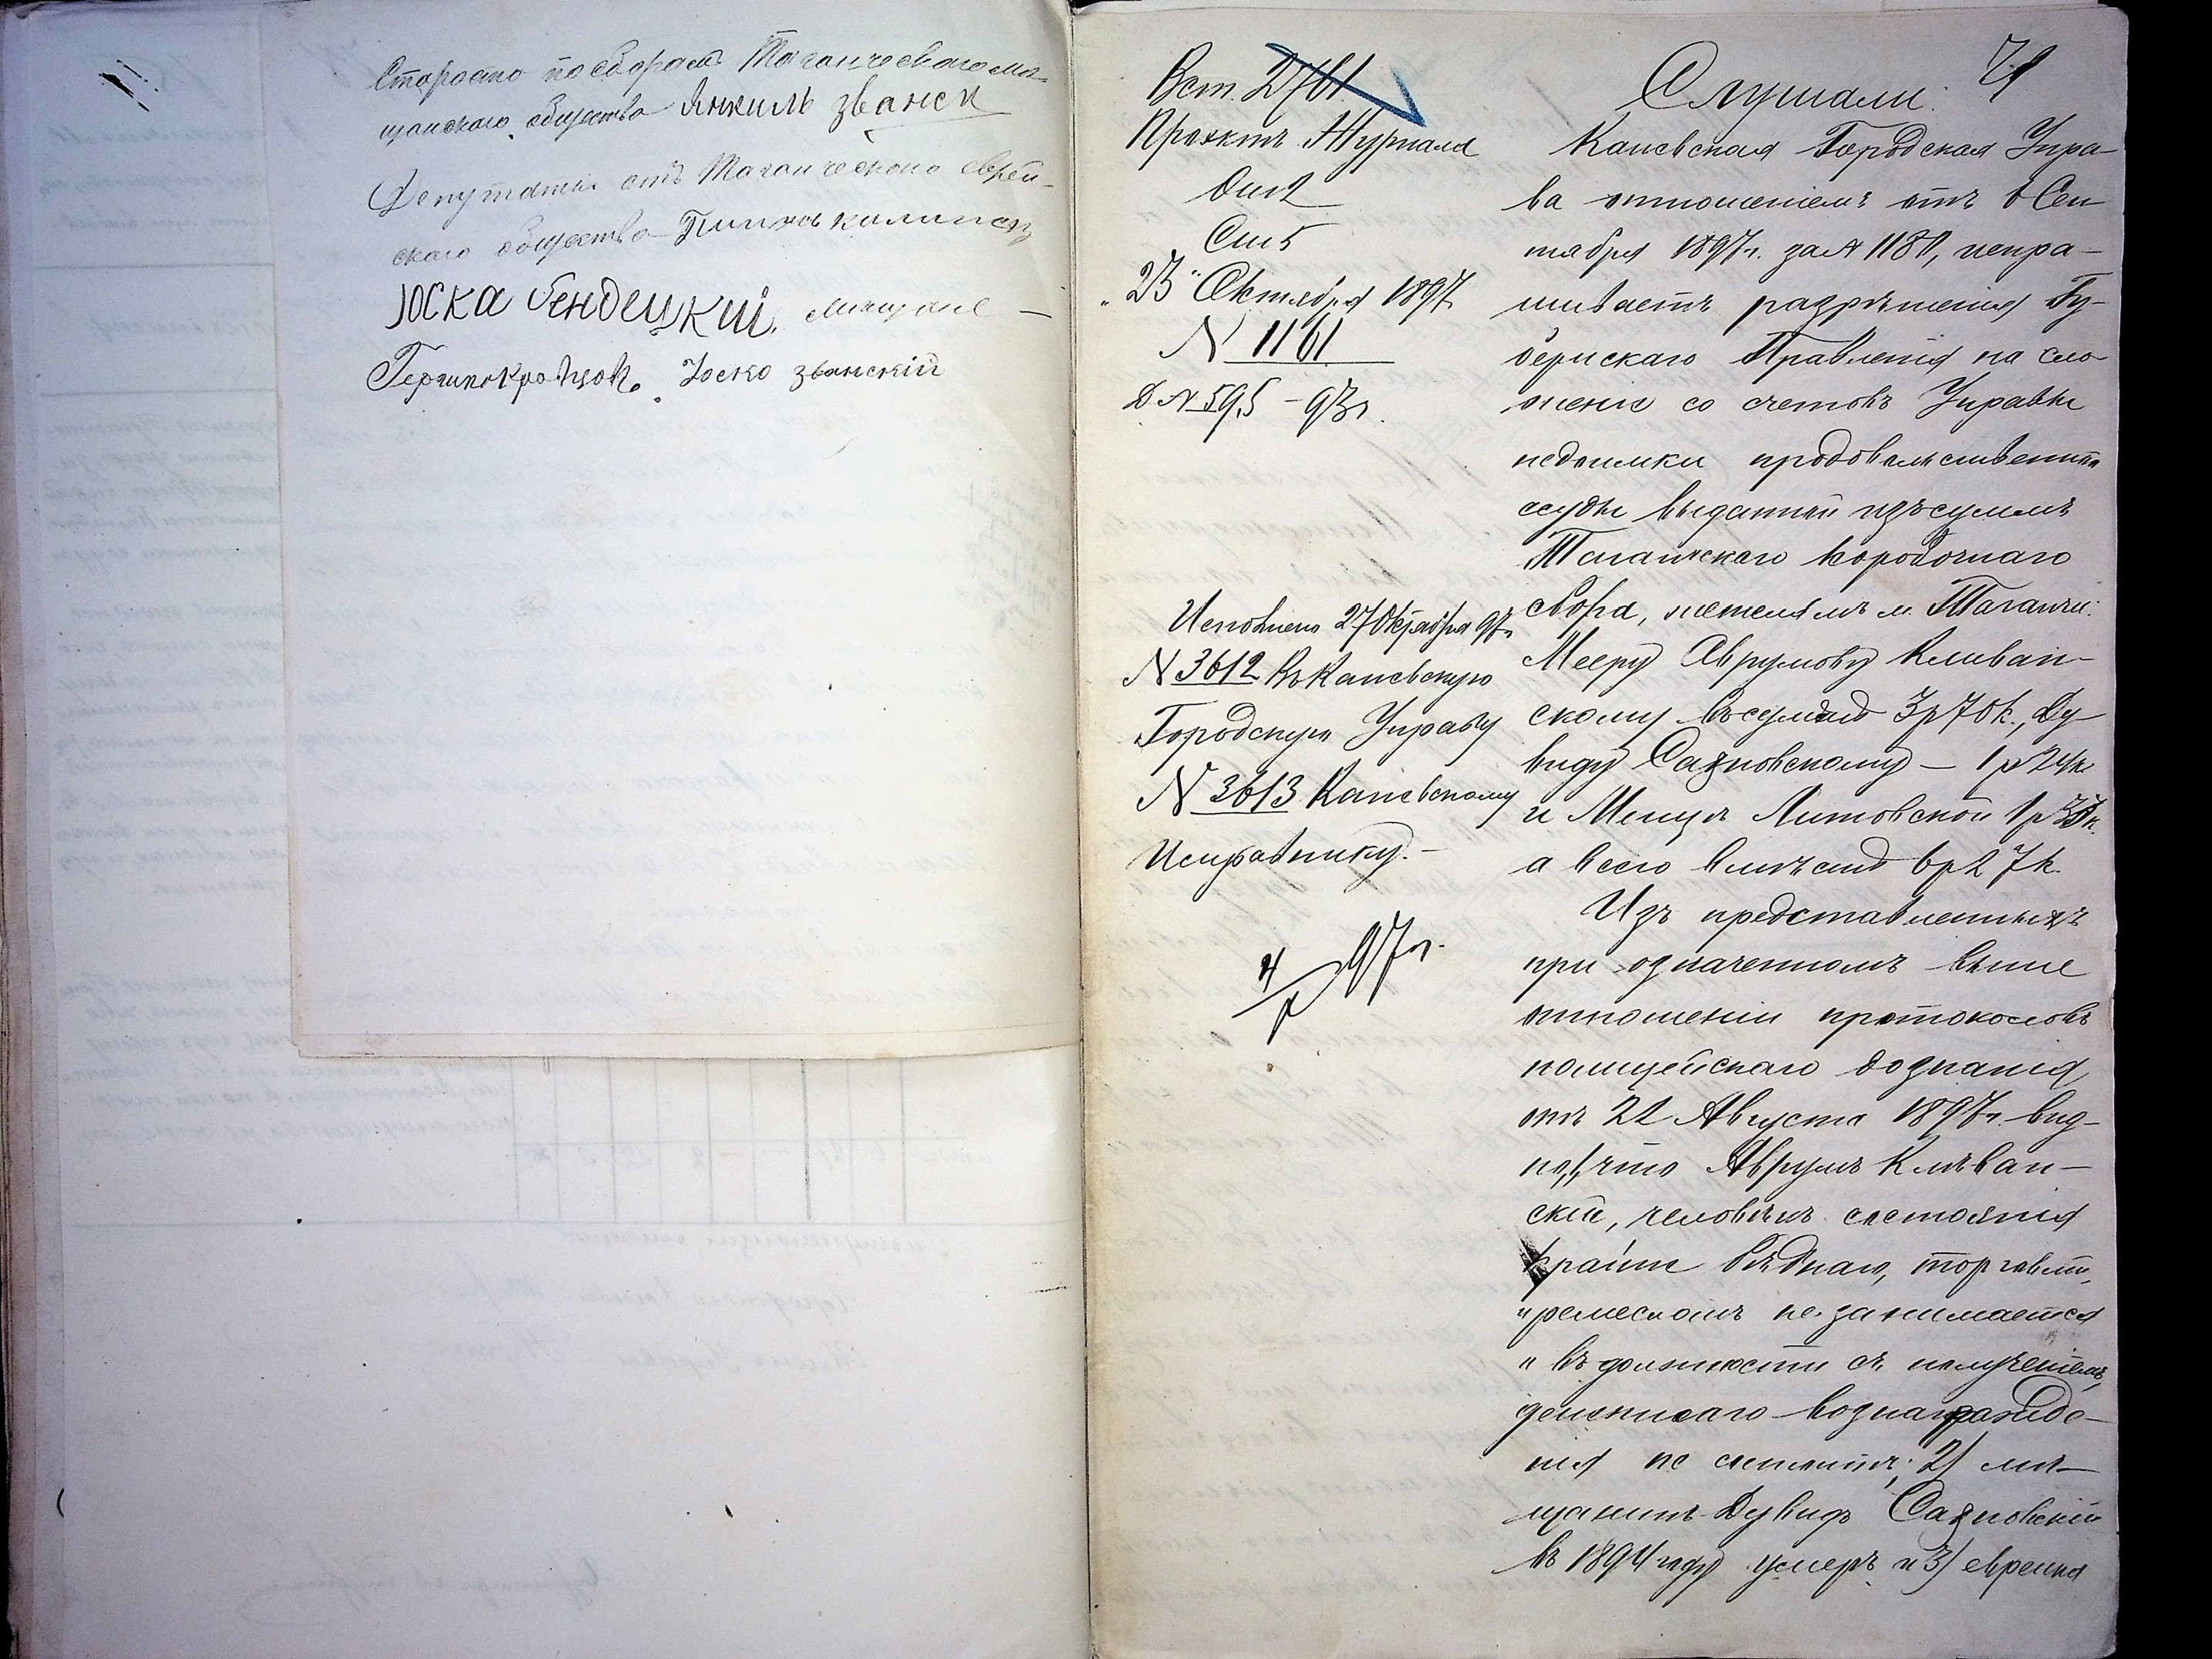 Староста по сборамъ Таганческаго мѣ-
щанскаго общества Янкиль званск
Депутаты отъ Таганческаго еврей-
скаго общества
Юска бендецкій. мѣщане —
Іоско званскій
71
Вст. 2761
Проектъ Журнала
Отд 2
Ст 5
"23" Октября 1897
N 1161
Д N 595 – 93г.
Исполнено 27 Октября 97г
N 3612 Въ Каневскую
Городскую Управу
N 3613 Каневскому
Исправнику. –
97г.
Слушали:
Каневская Городская Упра-
ва отношеніемъ отъ 6 Сен
тября 1897г. за N 1181, испра-
шиваетъ разрѣшенія Гу-
бернскаго Правленія на сло
женіе со счетовъ Управы
недоимки продовольственной
ссуды выданной изъ суммъ
Таганчскаго коробочнаго
сбора, жителямъ м. Таганчи:
Мееру Аврумову Кливан-
скому въ суммѣ 3р 70к., Ду-
виду Сахновскому – 1р
и Литовской 1р
а всего вмѣстѣ 6р 27к.
Изъ представленныхъ
при означенномъ выше
отношеніи протоколовъ
полицейскаго дознанія,
отъ 22 Августа 1897г. вид-
но, что Аврумъ Кливан-
скій, человѣкъ состоянія
крайне бѣднаго, торговлею
и ремесломъ не занимается
и въ должности съ полученіемъ
денежнаго вознагражде-
нія не состоитъ; 2) мѣ-
щанинъ Дувидъ Сахновскій
въ 1894 году умеръ и 3) еврейка